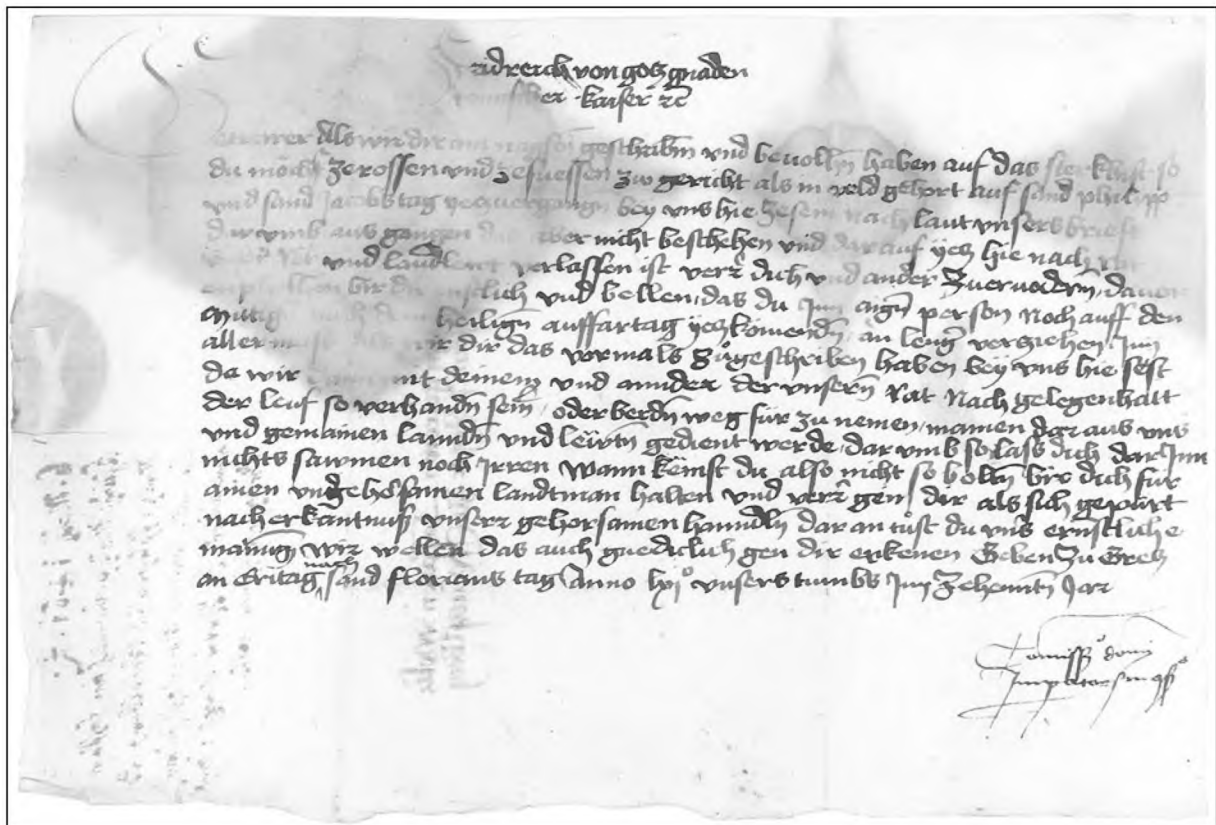 Fridreich von gots gnaden
Romischer kaiser etc
Getrewer Als wir dir am nagsten geschriben und bevolhen haben auf das sterkhist so
du mocht ze rossen und ze fuessen zw gericht als in veld gehort auf sand philipp
und sand Jacobs tag yecz vergangen bey uns hie ze sein nach laut unsers briefs
darumb aus gangen das aber nicht beschehen und darauf yecz hie nach
und landlewt verlassen ist verrer dich und ander zuervodern, davon
emphelhen wir dir ernstlich und wellen, das du Inn aigner person noch auff den
Mittich nach dem heiligen auffartag yecz komenden an lenger verziehen Inn
aller mass als wir dir das vormals zugeschriben haben bey uns hie seist
da wir mit deinem und annder der unsern Rat Nach gelegenhait
der leuf so verhandn sein, oder werden weg fur zu nemen mainen dar aus uns
und gemainen lanndn und lewten gedient werde, darumb so lass dich dar Inn
nichts sawmen noch Irren wann kemst du also nicht so wolten wir dich fur
ainen ungehorsamen landtman halten und verrer gen dir als sich gepurt
nach erkantnuss unserr gehorsamen hanndln daran tust du uns ernstliche
mainung wir wellen das auch gnediclich gen dir erkenen Geben zu Grecz
an Eritag nach sand florians tag Anno lxi° unsers kaisertumbs Im zehennten Jar
Commissio domini
Imperatoris in consilio